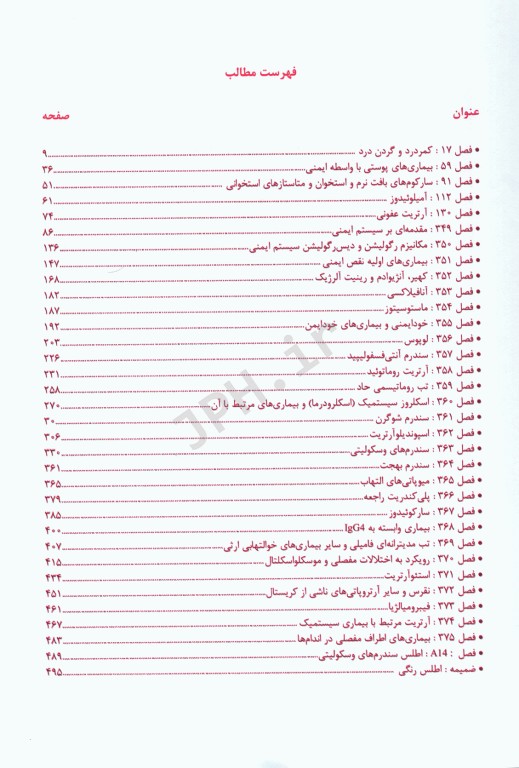 فهرست مطالب
عنوان صفحه
• فصل ۱۷ : کمردرد و گردن درد ........ ۹
• فصل ۵۹ : بیماری‌های پوستی با واسطه ایمنی ........ ۳۶
• فصل ۹۱ : سارکوم‌های بافت نرم و استخوان و متاستازهای استخوانی ........ ۵۱
• فصل ۱۱۲ : آمیلوئیدوز ........ ۶۱
• فصل ۱۳۰ : آرتریت عفونی ........ ۷۴
• فصل ۳۴۹ : مقدمه‌ای بر سیستم ایمنی ........ ۸۶
• فصل ۳۵۰ : مکانیزم رگولیشن و دیس‌رگولیشن سیستم ایمنی ........ ۱۳۶
• فصل ۳۵۱ : بیماری‌های اولیه نقص ایمنی ........ ۱۴۷
• فصل ۳۵۲ : کهیر، آنژیوادم و رینیت آلرژیک ........ ۱۶۸
• فصل ۳۵۳ : آنافیلاکسی ........ ۱۸۲
• فصل ۳۵۴ : ماستوسیتوز ........ ۱۸۷
• فصل ۳۵۵ : خودایمنی و بیماری‌های خودایمن ........ ۱۹۲
• فصل ۳۵۶ : لوپوس ........ ۲۰۳
• فصل ۳۵۷ : سندرم آنتی‌فسفولیپید ........ ۲۲۶
• فصل ۳۵۸ : آرتریت روماتوئید ........ ۲۳۱
• فصل ۳۵۹ : تب روماتیسمی حاد ........ ۲۵۸
• فصل ۳۶۰ : اسکلروز سیستمیک (اسکلرودرما) و بیماری‌های مرتبط با آن ........ ۲۷۰
• فصل ۳۶۱ : سندرم شوگرن ........ ۳۰
• فصل ۳۶۲ : اسپوندیلوآرتریت ........ ۳۰۶
• فصل ۳۶۳ : سندرم‌های وسکولیتی ........ ۳۳۰
• فصل ۳۶۴ : سندرم بهجت ........ ۳۶۱
• فصل ۳۶۵ : میوپاتی‌های التهاب ........ ۳۶۵
• فصل ۳۶۶ : پلی‌کندریت راجعه ........ ۳۷۹
• فصل ۳۶۷ : سارکوئیدوز ........ ۳۸۵
• فصل ۳۶۸ : بیماری وابسته به IgG4 ........ ۴۰۰
• فصل ۳۶۹ : تب مدیترانه‌ای فامیلی و سایر بیماری‌های خوالتهابی ارثی ........ ۴۰۷
• فصل ۳۷۰ : رویکرد به اختلالات مفصلی و موسکلواسکلتال ........ ۴۱۵
• فصل ۳۷۱ : استئوآرتریت ........ ۴۳۴
• فصل ۳۷۲ : نقرس و سایر آرتروپاتی‌های ناشی از کریستال ........ ۴۵۱
• فصل ۳۷۳ : فیبرومیالژیا ........ ۴۶۱
• فصل ۳۷۴ : آرتریت مرتبط با بیماری سیستمیک ........ ۴۶۷
• فصل ۳۷۵ : بیماری‌های اطراف مفصلی در اندام‌ها ........ ۴۸۳
• فصل A14 : اطلس سندرم‌های وسکولیتی ........ ۴۸۹
• ضمیمه : اطلس رنگی ........ ۴۹۵
JPH.ir